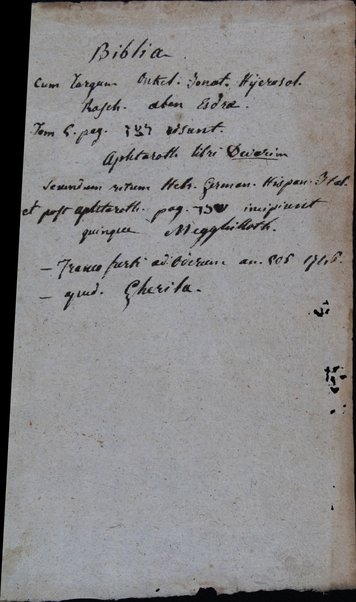 Biblia
cum Targum Onkel. Jonat. Hyerosol.
Rasch. aben Esdra.
Tom 5. pag. רצד
Aphtaroth libri Devarim
Secundum ritum Hebr. German. Hispan. Ital.
et post aphtaroth. pag. incipiunt
quinque Megghilloth.
– Francofurti ad Oderum an. 506 1746.
– apud. Gherila.